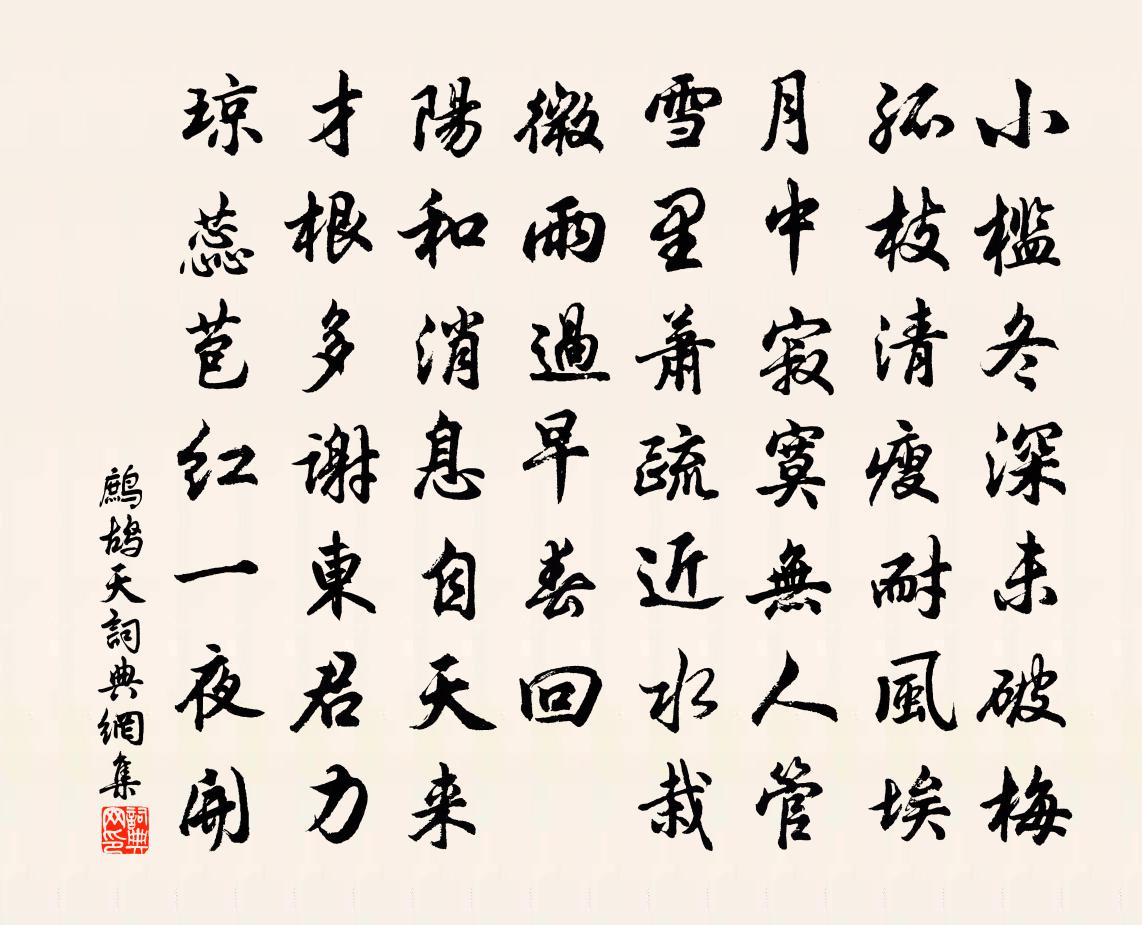 小槛冬深未破梅
孤枝清瘦耐風埃
月中寂寞無人管
雪里蕭疏近水栽
微雨過早春回
陽和消息自天来
才根多謝東君力
琼蕊苞红一夜開
鷓鴣天詞典網集
詞典网印